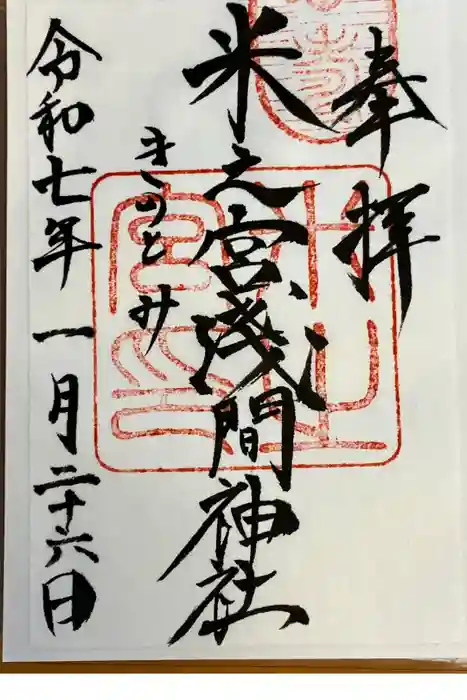 奉拝
米之宮浅間神社
令和七年一月二十六日